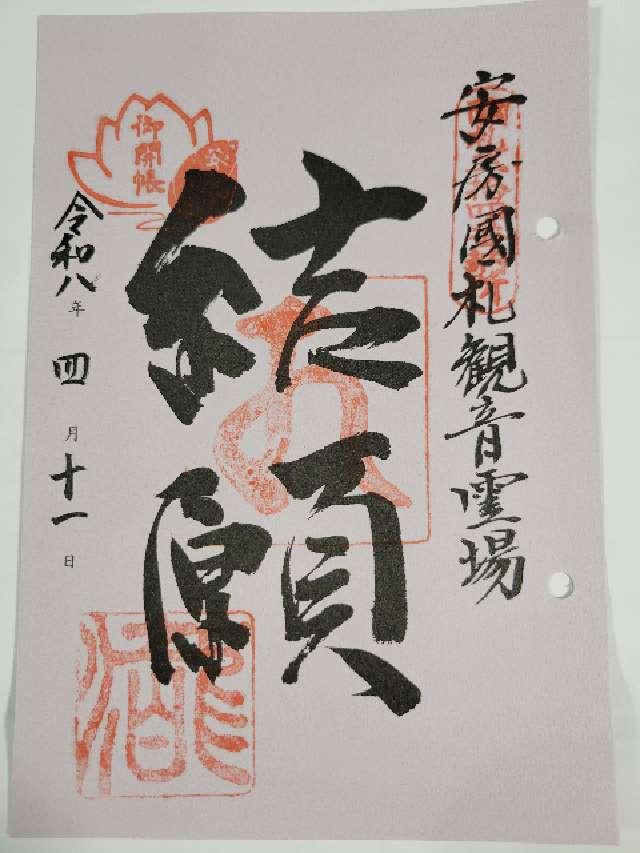 安房國札観音霊場
結願
御開帳
令和八年四月十一日